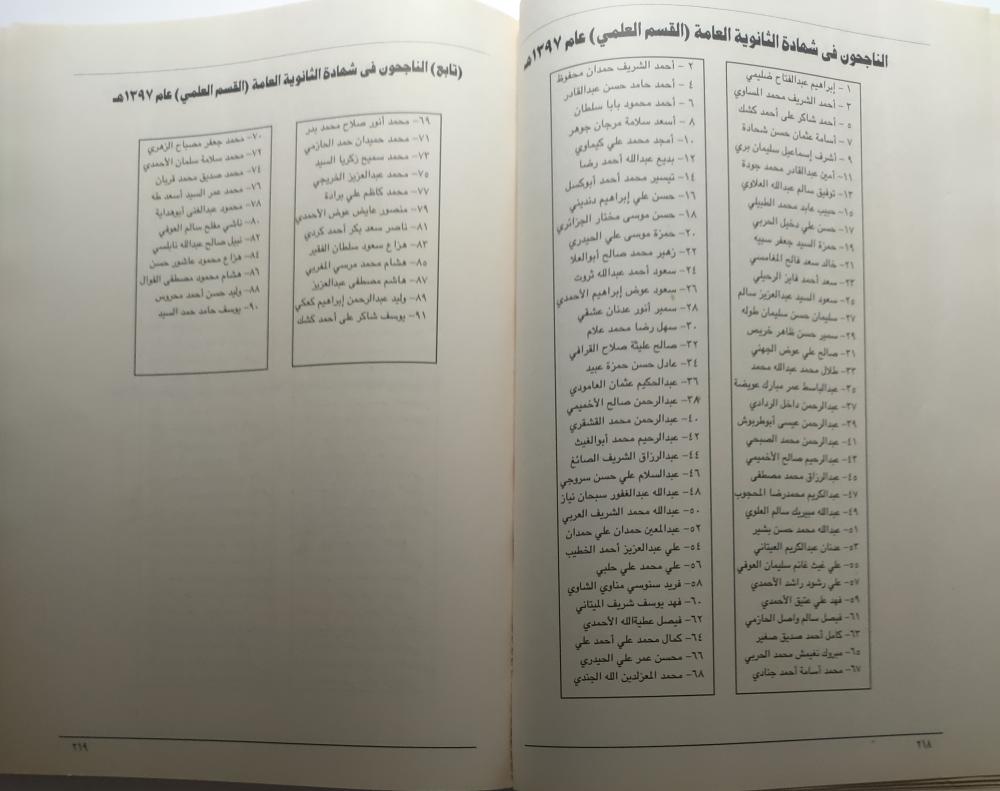 الناجحون فى شهادة الثانوية العامة (القسم العلمي) عام ١٣٩٧هـ
١ - إبراهيم عبدالفتاح ضليمي
٢ - أحمد الشريف حمدان محفوظ
٣ - أحمد الشريف محمد المساوي
٤ - أحمد حامد حسن عبدالقادر
٥ - أحمد شاكر على أحمد كشك
٦ - أحمد محمود بابا سلطان
٧ - أسامة عثمان حسن شحادة
٨ - أسعد سلامة مرجان جوهر
٩ - أشرف إسماعيل سليمان بري
١٠- أمجد محمد علي كيماوي
١١- أمين عبدالقادر محمد جودة
١٢- بديع عبدالله أحمد رضا
١٣- توفيق سالم عبدالله العلاوي
١٤- تيسير محمد أحمد أبوكسل
١٥- حبيب عابد محمد الطبيلي
١٦- حسن علي إبراهيم دنديني
١٧- حسن علي دخيل الحربي
١٨- حسن موسى مختار الجزائري
١٩- حمزة السيد جعفر سبيه
٢٠- حمزة موسى علي الحيدري
٢١- خالد سعد فالح المغامسي
٢٢- زهير محمد صالح أبوالعلا
٢٣- سعد أحمد فايز الرحيلي
٢٤- سعود أحمد عبدالله ثروت
٢٥- سعود السيد عبدالعزيز سالم
٢٦- سعود عوض إبراهيم الأحمدي
٢٧- سليمان حسن سليمان طوله
٢٨- سمير أنور عدنان عشقي
٢٩- سمير حسن ظاهر خريص
٣٠- سهل رضا محمد علام
٣١- صالح علي عوض الجهني
٣٢- صالح عليثة صلاح القرافي
٣٣- طلال محمد عبدالله محمد
٣٤- عادل حسن حمزة عبيد
٣٥- عبدالباسط عمر مبارك عويضة
٣٦- عبدالحكيم عثمان العامودي
٣٧- عبدالرحمن داخل الردادي
٣٨- عبدالرحمن صالح الأخميمي
٣٩- عبدالرحمن عيسى أبوطربوش
٤٠- عبدالرحمن محمد القشقري
٤١- عبدالرحمن محمد الصبحي
٤٢- عبدالرحيم محمد أبوالغيث
٤٣- عبدالرحيم صالح الأخميمي
٤٤- عبدالرزاق الشريف الصائغ
٤٥- عبدالرزاق محمد مصطفى
٤٦- عبدالسلام علي حسن سروجي
٤٧- عبدالكريم محمدرضا المحجوب
٤٨- عبدالله عبدالغفور سبحان نياز
٤٩- عبدالله مبيريك سالم العلوي
٥٠- عبدالله محمد الشريف العربي
٥١- عبدالله محمد حسن بشير
٥٢- عبدالمعين حمدان علي حمدان
٥٣- عدنان عبدالكريم العيتاني
٥٤- علي عبدالعزيز أحمد الخطيب
٥٥- علي غيث غانم سليمان العوفي
٥٦- علي محمد علي حلبي
٥٧- علي رشود راشد الأحمدي
٥٨- فريد سنوسي مناوي الشاوي
٥٩- فهد علي عتيق الأحمدي
٦٠- فهد يوسف شريف الميتاني
٦١- فيصل سالم واصل الحازمي
٦٢- فيصل عطيةالله الأحمدي
٦٣- كامل أحمد صديق صغير
٦٤- كمال محمد علي أحمد علي
٦٥- مبروك نغيمش محمد الحربي
٦٦- محسن عمر علي الحيدري
٦٧- محمد أسامة أحمد جنادي
٦٨- محمد المعزلدين الله الجندي
٢٦٨
(تابع) الناجحون فى شهادة الثانوية العامة (القسم العلمي) عام ١٣٩٧هـ
٦٩- محمد أنور صلاح محمد بدر
٧٠- محمد جعفر مصباح الزهري
٧١- محمد حميدان حمد الحازمي
٧٢- محمد سلامة سلمان الأحمدي
٧٣- محمد سميح زكريا السيد
٧٤- محمد صديق محمد قربان
٧٥- محمد عبدالعزيز الخريجي
٧٦- محمد عمر السيد أسعد طه
٧٧- محمد كاظم علي برادة
٧٨- محمود عبدالغنى أبوهداية
٧٩- منصور عايض عوض الأحمدي
٨٠- ناشي مفلح سالم العوفي
٨١- ناصر سعد بكر أحمد كردي
٨٢- نبيل صالح عبدالله نابلسي
٨٣- هزاع سعود سلطان الفقير
٨٤- هزاع محمود عاشور حسن
٨٥- هشام محمد مرسي المغربي
٨٦- هشام محمود مصطفى القوال
٨٧- هاشم مصطفى عبدالعزيز
٨٨- وليد حسن أحمد محروس
٨٩- وليد عبدالرحمن إبراهيم كعكي
٩٠- يوسف حامد حمد السيد
٩١- يوسف شاكر على أحمد كشك
٢٦٩